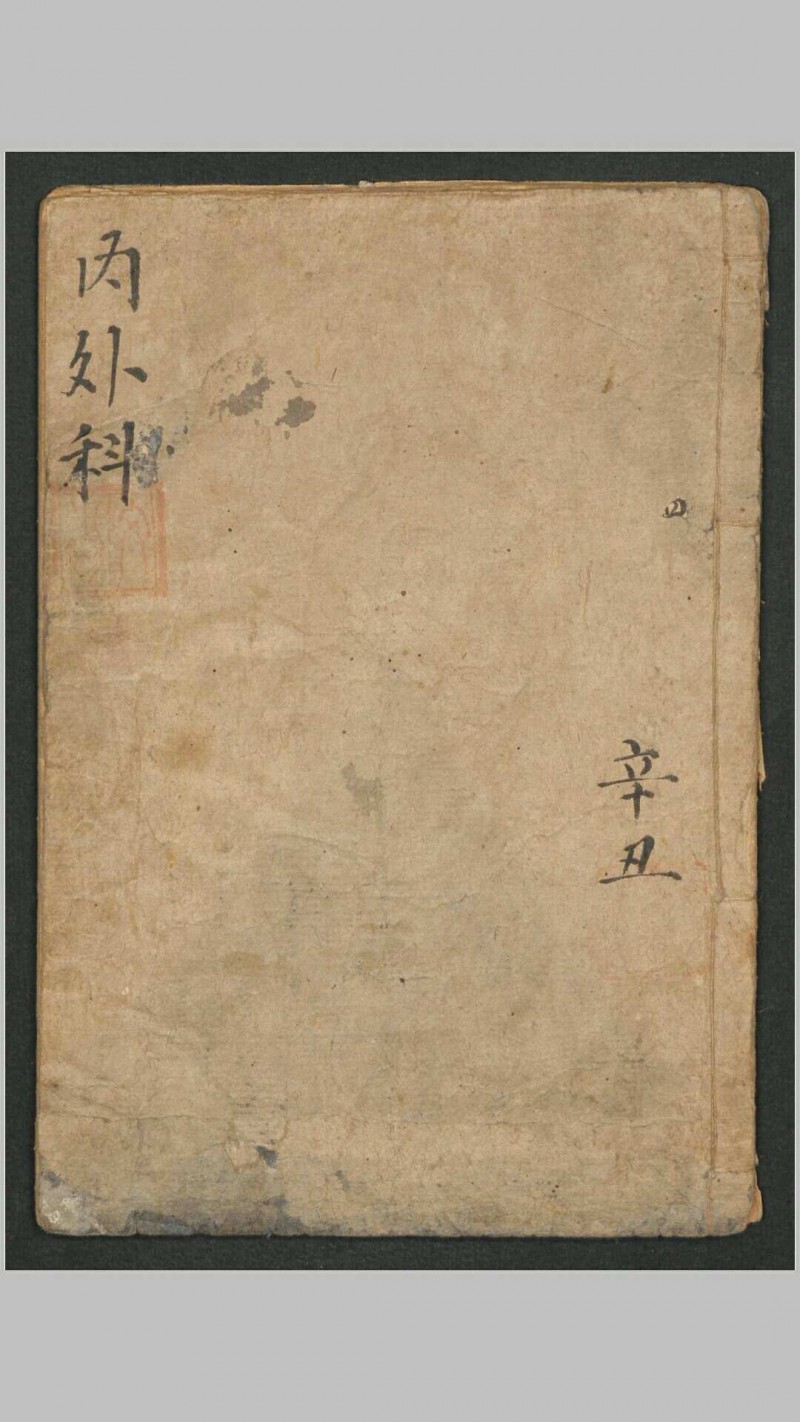 内外科
四
辛丑